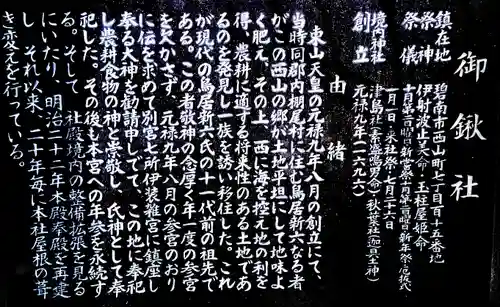 御鍬社
鎮在地 碧南市西山町七丁目百十五番地
祭神 伊射波止美命・玉柱屋姫命
祭儀 十月第二日曜日新嘗祭・十月第三日曜日新年祭・厄払式
一月一日・末社祭・七月二十六日
境内神社 津島社(素盞鳴男命)秋葉社(迦具土神)
創立 元禄九年(一六九六)
由緒
東山天皇の元禄九年八月の創立にて、
当時同郡内棚尾村に住む鳥居新六なる者
がこの西山の郷が土地平坦にして地味よ
く肥え、その上、西に海を控え地の利を
得、農耕に適する将来性のある土地であ
るのを発見し一族を誘い移住した。これ
が現代の鳥居新六氏の十一代前の祖先で
ある。この者敬神の念厚く年一度の参宮
を欠かさず、元禄九年八月の参宮のおり
に伝を求めて別宮七所伊装雑宮に鎮座し
奉る大神を勧請申して、この地に奉祀
し農耕食物の神と崇敬し、氏神として奉
祀した。その後も本宮への年参を永続す
る。そして、社殿境内の整備拡張を見る
にいたり、明治二十二年本殿奉殿を再建
し、それ以来、二十年毎に本社屋根の葺
き変えを行っている。